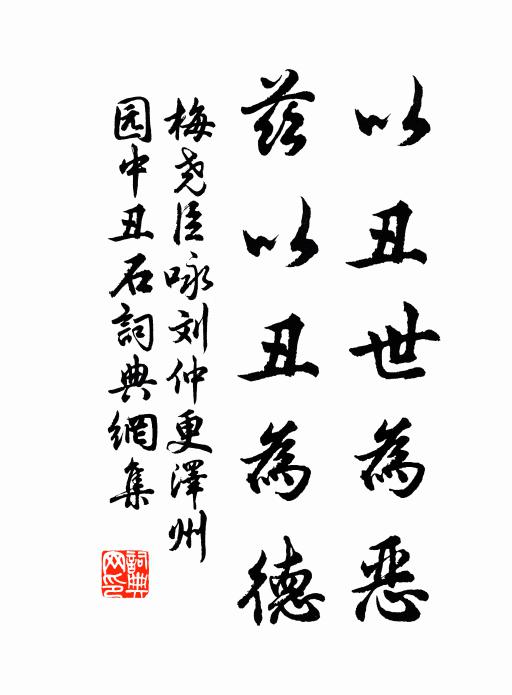 以丑世為恶
兹以丑為德
梅尧臣咏刘仲更澤州
园中丑石詞典網集
詞典
网印